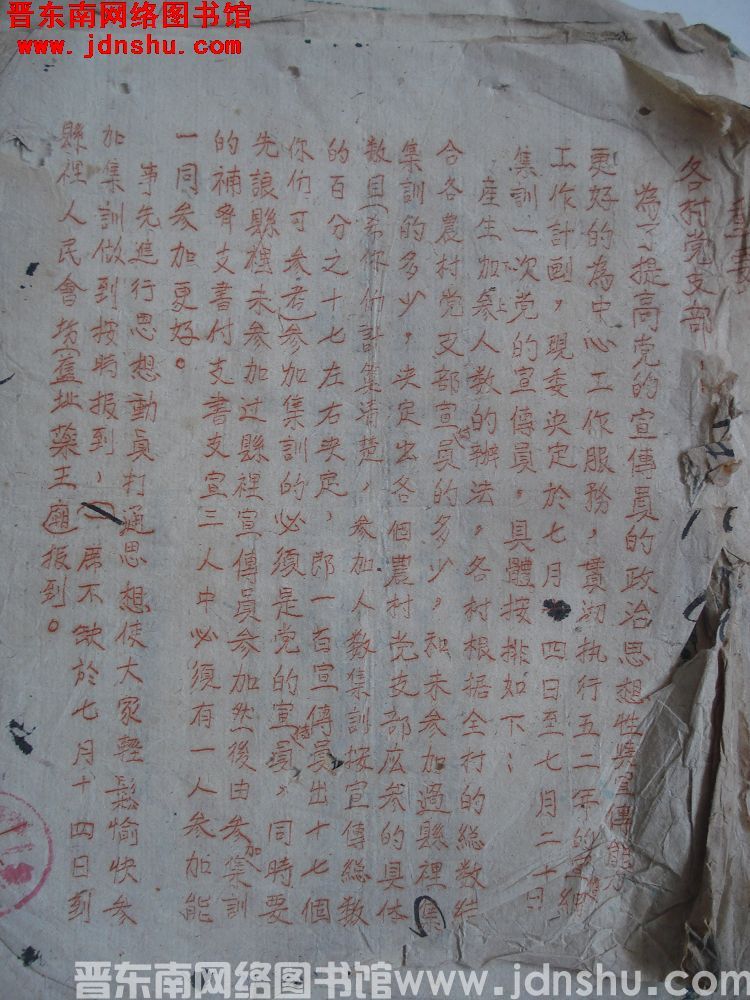 晋东南网络图书馆
www.jdnshu.com
各村党支部
為了提高党的宣傳員的政治思想性與宣傳能力
更好的為中心工作服務，貫澈执行五二年的宣網
工作計劃，現委决定於七月 四日至七月二十日
集訓一次党的宣傳員，具體按排如下：
產生加参人数的辦法，各村根据全村的總数結
合各農村党支部宣傳員的多少，和未参加過縣裡集
集訓的多少，决定出各個農村党支部应参的具体
数目（希你们計算清楚，参加人数集訓按宣傳總数
的百分之十七左右决定，即一百宣傳員出十七個
你们可参考）参加集訓的必須是党的宣傳員，同時要
先讓縣裡未参加过縣裡宣傳員参加然後由参加集訓
的補齊支書付支書支宣三人中必須有一人参加能
一同参加更好。
事先進行思想動員打通思想使大家輕鬆愉快参
加集訓做到按時报到，一席不缺於七月十四日到
縣裡人民會場（舊址藥王廟）报到。
晋东南网络图书馆www.jdnshu.com